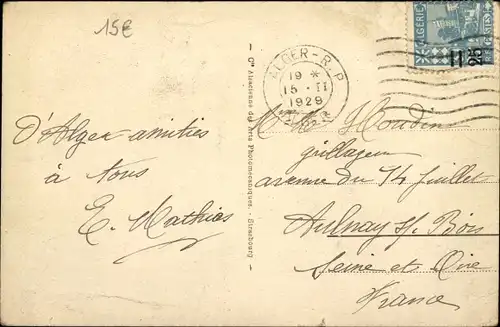 15€
ALGER-R.P
19 *
15 - II
1929
ALGERIE
POSTES
25
D'Alger amitiés
à tous
E. Mathias
Cie Alsacienne des Arts Photomécaniques. - Strasbourg
M. Houdin
grillageur
avenue du 14 juillet
Aulnay s/ Bois
Seine et Oise
France